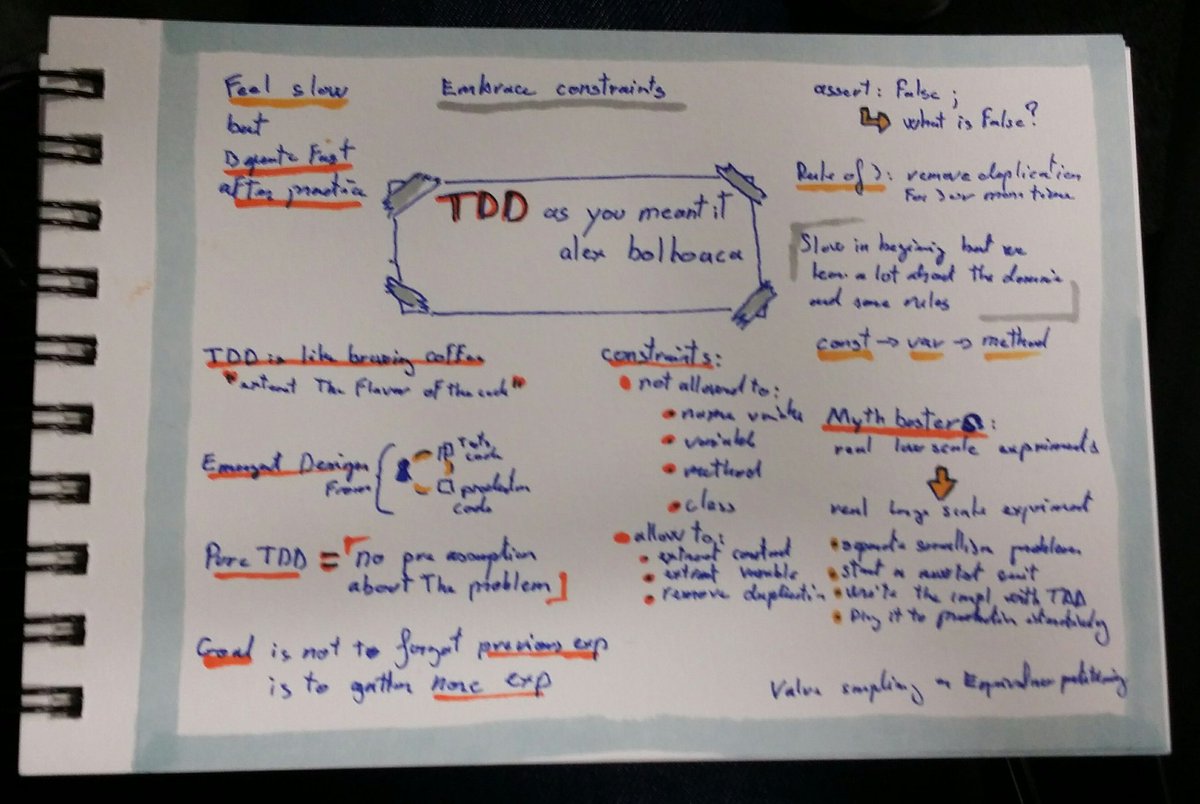 Feel slow
but
Fast
after practice
Embrace constraints
assert: False;
what is False?
Rule of 3: remove duplication
For 3 or more time
TDD as you meant it
alex bolboaca
Slow in begining but we
learn a lot about the domain
and some rules
const → var → method
TDD is like brewing coffee
"extract The Flavor of the code"
Emergent Design
From
Tests
code
production
code
Pure TDD = no pre asomption
about The problem
Goal is not to forget previous exp
is to gather more exp
constraints:
not allowed to:
name
variable
method
class
allow to:
extract constant
extract variable
remove duplication
Myth busters:
real low scale expriments
real large scale expriment
separate problem
start a
write the impl with TDD
it to production
Value sampling